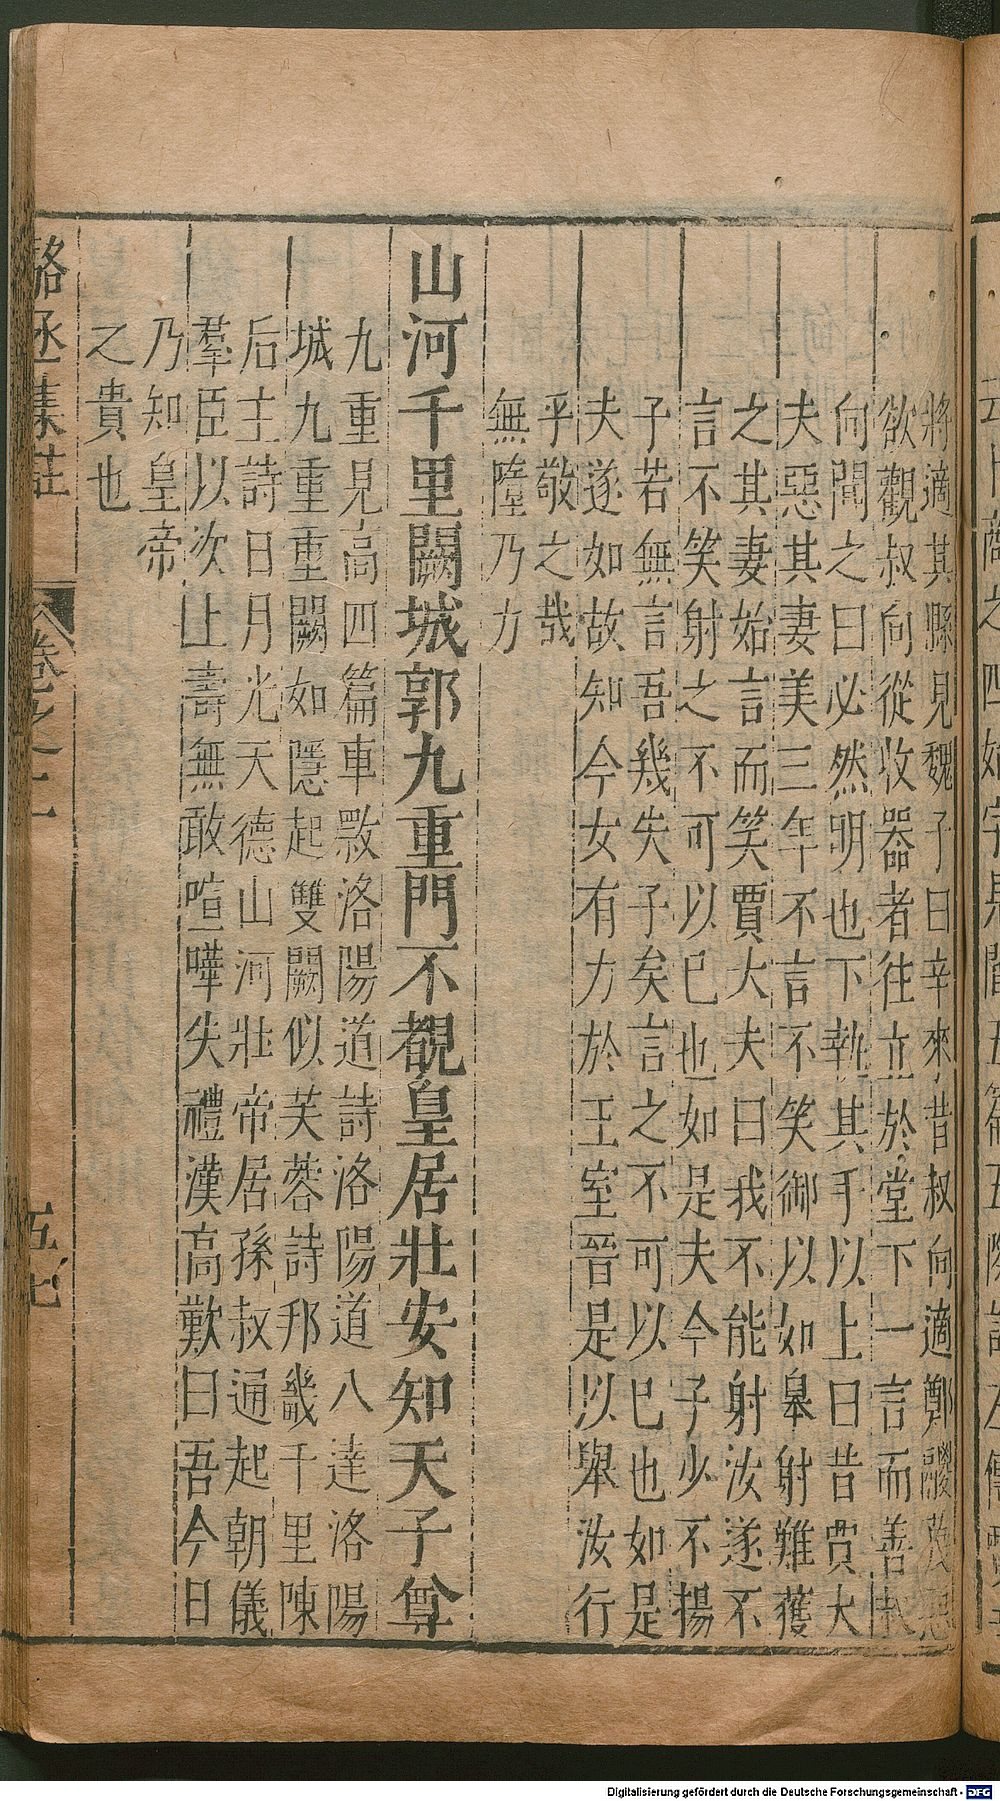 將適其縣見魏子曰辛來昔叔向適鄭鬷蔑惡
欲觀叔向從收器者往立於堂下一言而善叔
向聞之曰必然明也下執其手以上曰昔賈大
夫惡其妻美三年不言不笑御以如皋射雉獲
之其妻始言而笑賈大夫曰我不能射汝遂不
言不笑射之不可以已也如是夫今子少不揚
子若無言吾幾失子矣言之不可以已也如是
夫遂如故知今女有力於王室晉是以舉汝行
乎敬之哉
無墮乃力
山河千里闕城郭九重門不覩皇居壯安知天子尊
九重見高四篇車敦洛陽道詩洛陽道八達洛陽
城九重重闕如隱起雙闕似芙蓉詩邦畿千里陳
后主詩日月光天德山河壯帝居孫叔通起朝儀
羣臣以次上壽無敢喧嘩失禮漢高歎曰吾今日
乃知皇帝
之貴也
駱丞集註
卷之二
五
Digitalisierung gefördert durch die Deutsche Forschungsgemeinschaft - DFG